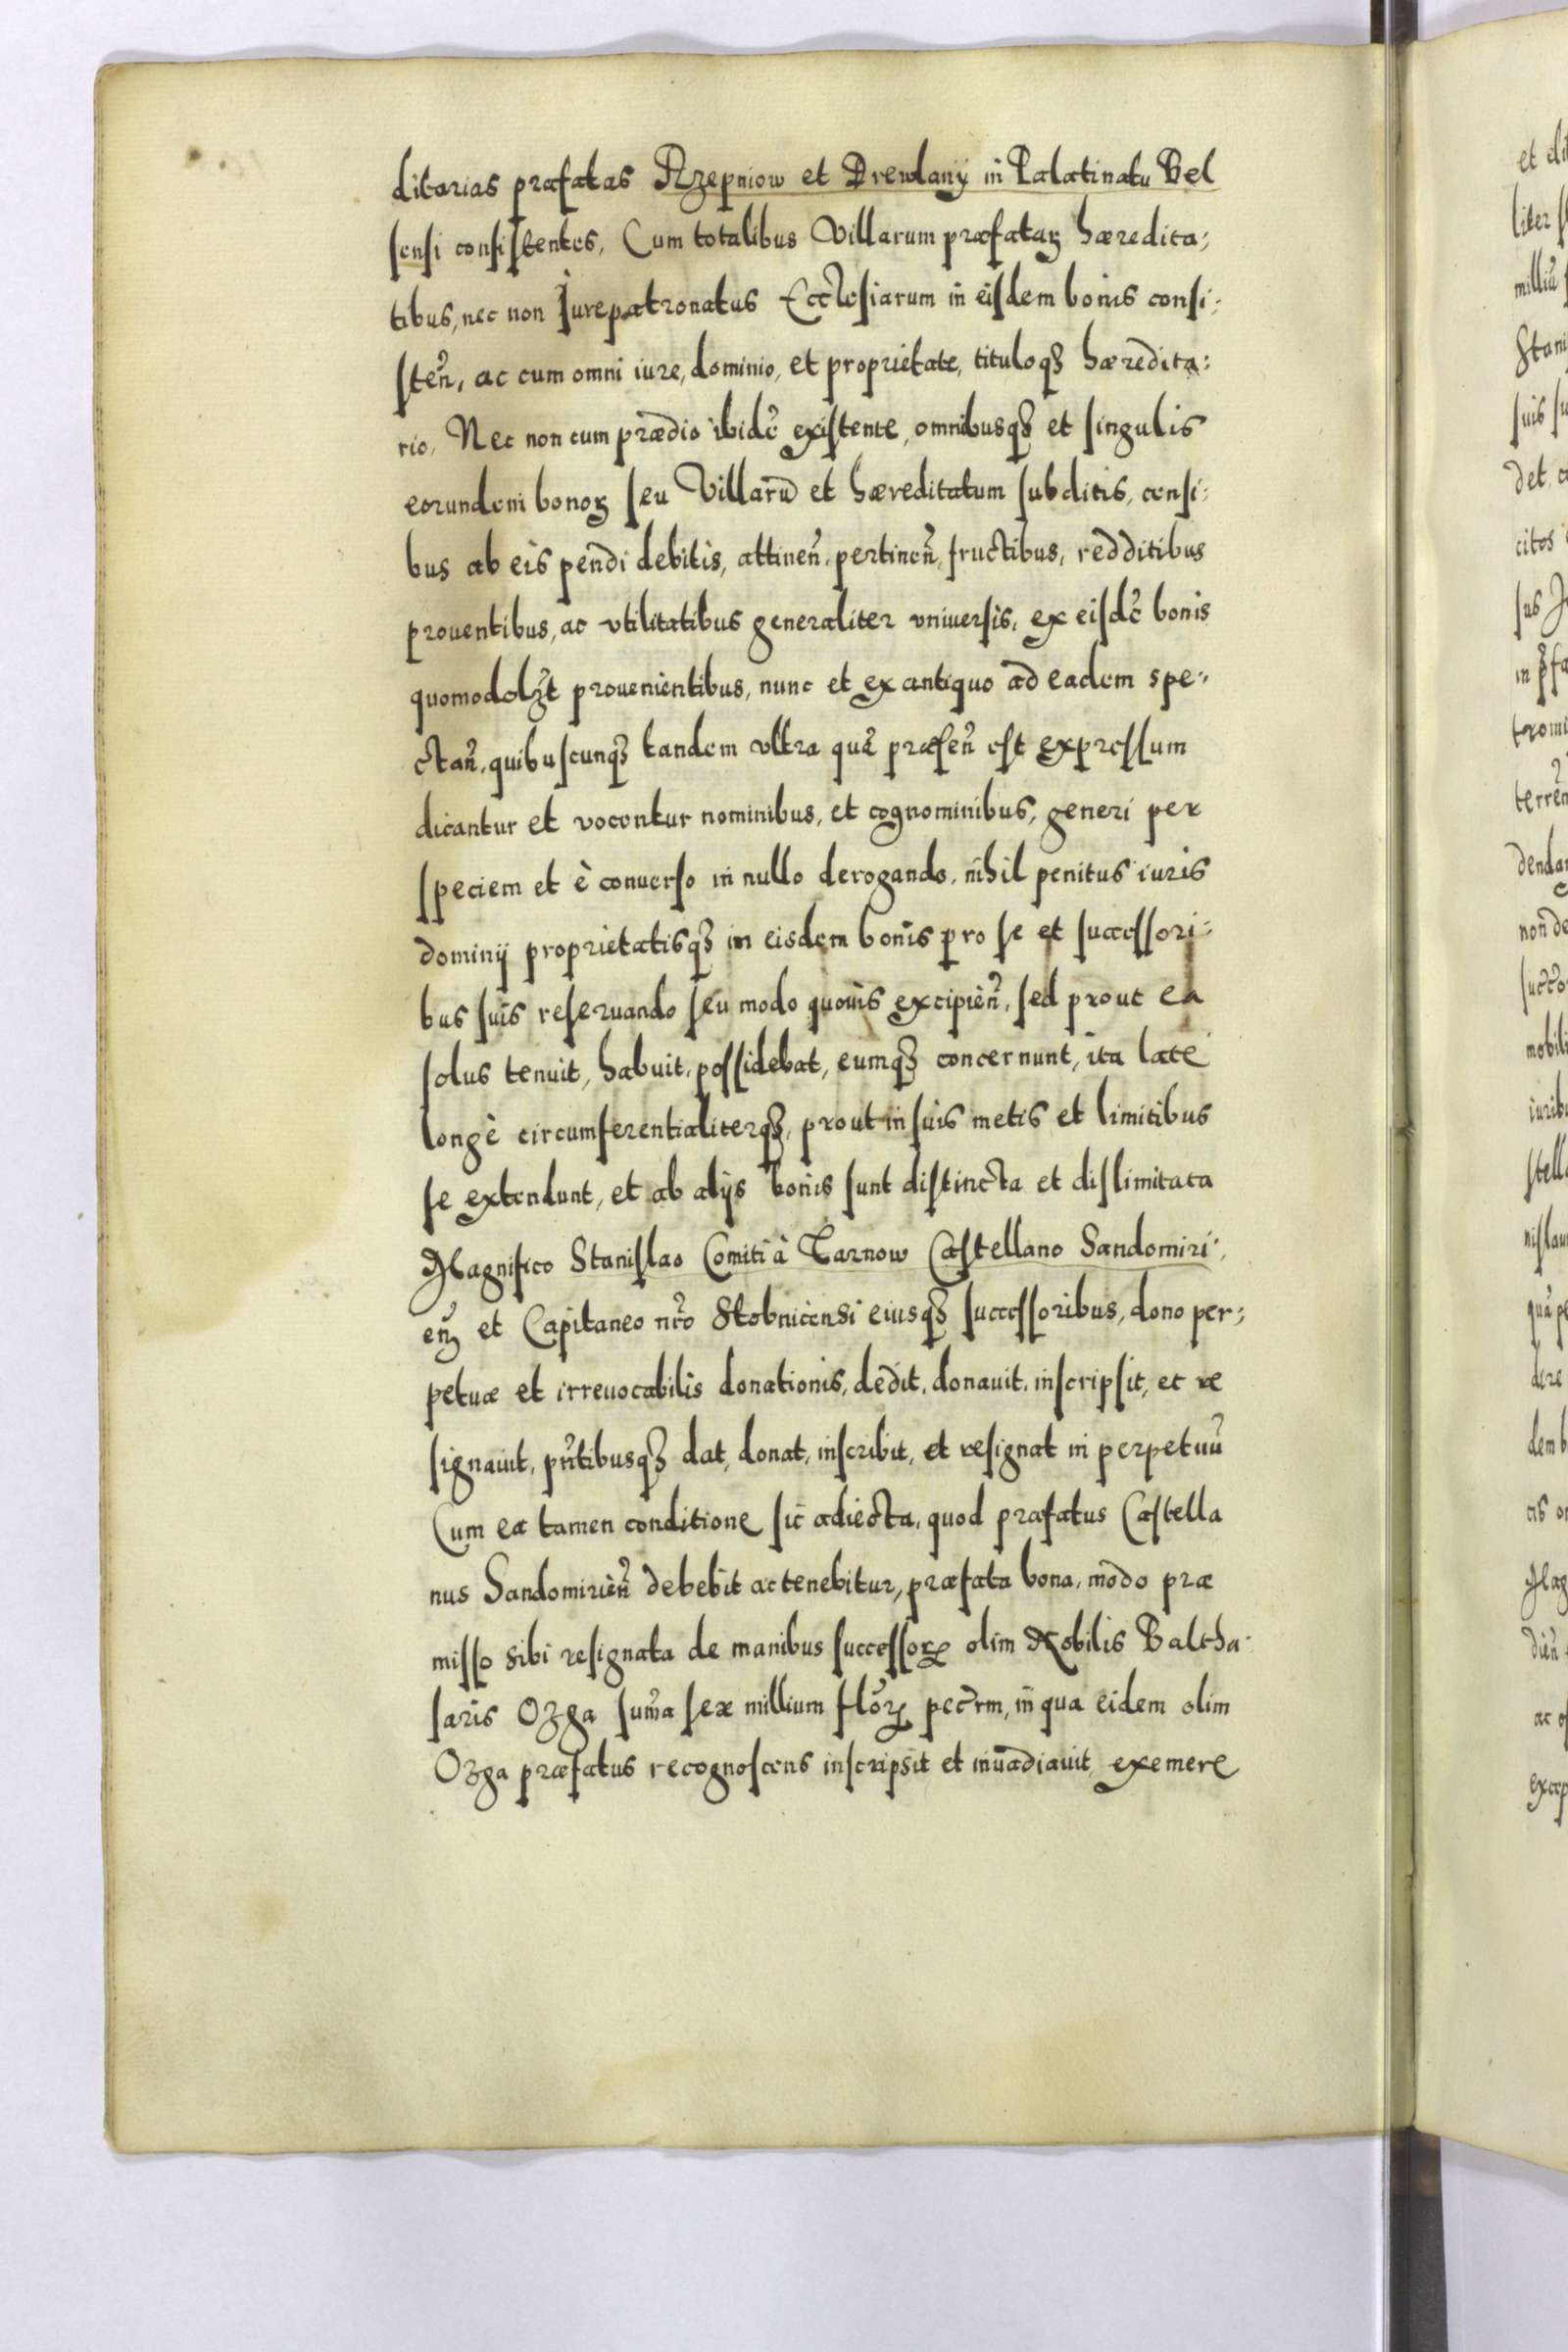 ditarias præfatas Rzepniow et Drewlanÿ in Palatinatu Bel
sensi consistentes, Cum totalibus Villarum præfataꝝ hæredita;
tibus, nec non Jurepatronatus Ecclesiarum in eisdem bonis consi:
steñ, ac cum omni iure, dominio, et proprietate, tituloqȝ hæredita:
rio, Nec non cum prædio ibidē existente, omnibusqȝ et singulis
eorundem bonoꝝ seu Villarū et hæreditatum subditis, censi:
bus ab eis pendi debitis, attineñ, pertineñ, fructibus, redditibus
prouentibus, ac vtilitatibus generaliter vniuersis, ex eisdē bonis
quomodolȝt prouenientibus, nunc et ex antiquo ad eadem spe:
ctañ, quibuscunqȝ tandem vltra quā præseñ est expressum
dicantur et vocentur nominibus, et cognominibus, generi per
speciem et è conuerso in nullo derogando, nihil penitus iuris
dominij proprietatisqȝ in eisdem bonis pro se et successori:
bus suis reseruando seu modo quouis excipieñ, sed prout ea
solus tenuit, habuit, possidebat, eumqȝ concernunt, ita latè
longè circumferentialiterqȝ, prout in suis metis et limitibus
se extendunt, et ab alijs bonis sunt distincta et dislimitata
Magnifico Stanislao Comiti à Tarnow Castellano Sandomiri:
eñ et Capitaneo nr̃o Stobnicensi eiusqȝ successoribus, dono per;
petuæ et irreuocabilis donationis, dedit, donauit, inscripsit, et re
signauit, pñtibusqȝ dat, donat, inscribit, et resignat in perpetuū
Cum ea tamen conditione sic adiecta, quod præfatus Castella
nus Sandomirieñ debebit ac tenebitur, præfata bona, modo præ
misso sibi resignata de manibus successoꝝ olim Nobilis Baltha:
saris Ozga sum̃a sex millium flõꝝ pec̃rm, in qua eidem olim
Ozga præfatus recognoscens inscripsit et inuadiauit, exemere